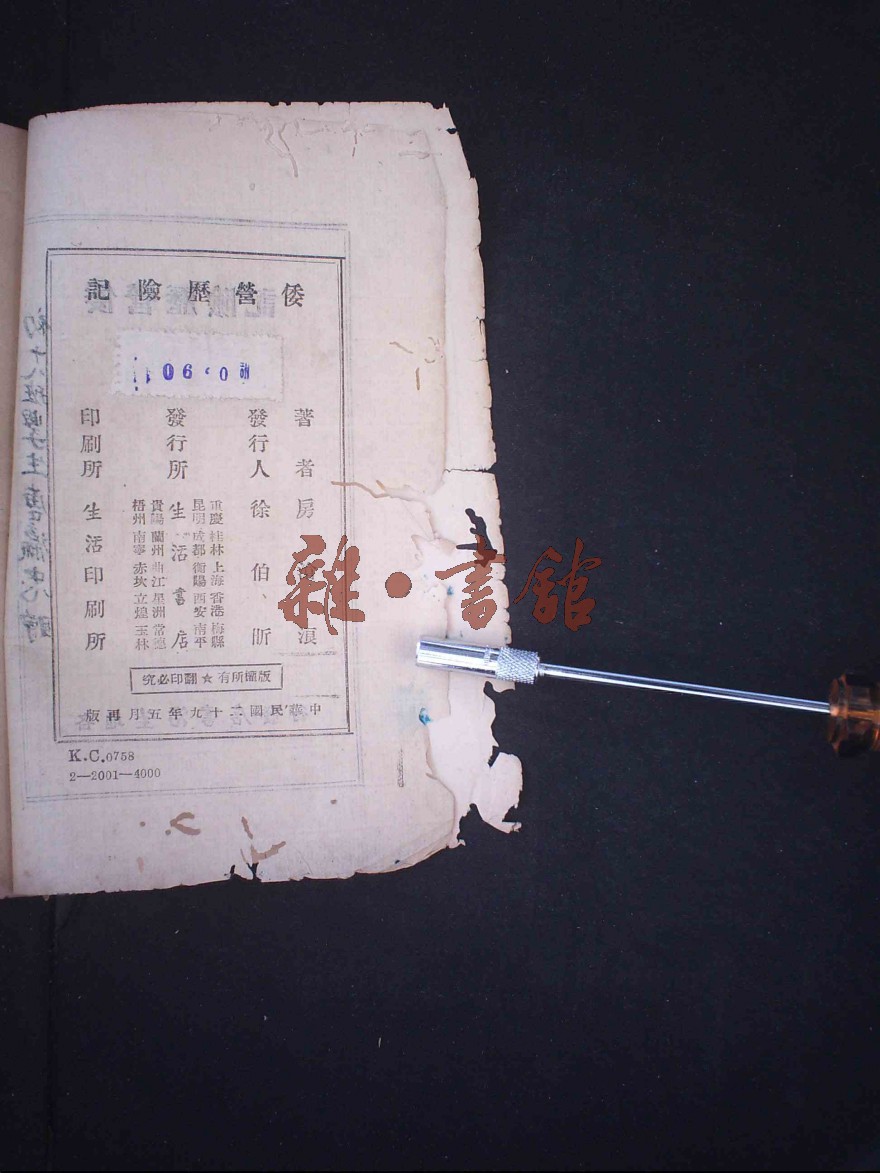 倭營歷險記
著者 房 浪
發行人 徐伯昕
發行所 生活書店
重慶 桂林 上海 香港 梅縣
昆明 成都 衡陽 西安 南平
貴陽 蘭州 曲江 星洲 常德
梧州 南寧 赤坎 立煌 玉林
印刷所 生活印刷所
版權所有☆翻印必究
中華民國二十九年五月再版
K.C.0758
2—2001—4000
雜·書館